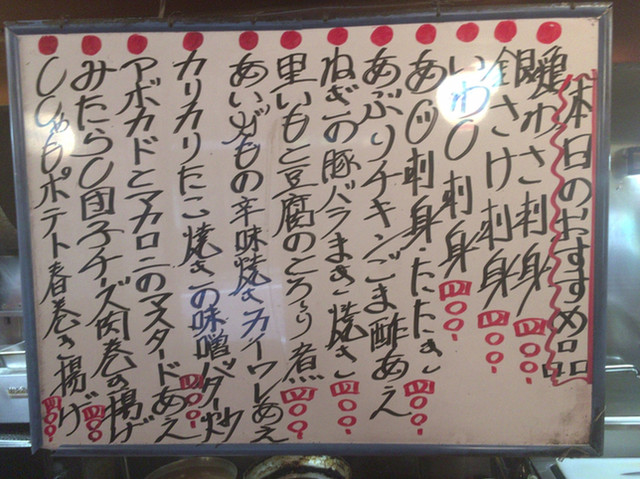 本日のおすすめ品
鶏わさ刺身 四〇〇
銀さけ刺身 四〇〇
いわし刺身 四〇〇
あじ刺身・たたき 四〇〇
あぶりチキンごま酢あえ
ねぎの豚バラまき焼き 四〇〇
里いもと豆腐のころころ煮 四〇〇
あいがもの辛味焼きカイワレあえ
カリカリたこ焼きの味噌バター炒 四〇〇
アボカドとマカロニのマスタードあえ
みたらし団子チーズ肉巻き揚げ 四〇〇
ししゃもポテト春巻き揚げ 四〇〇